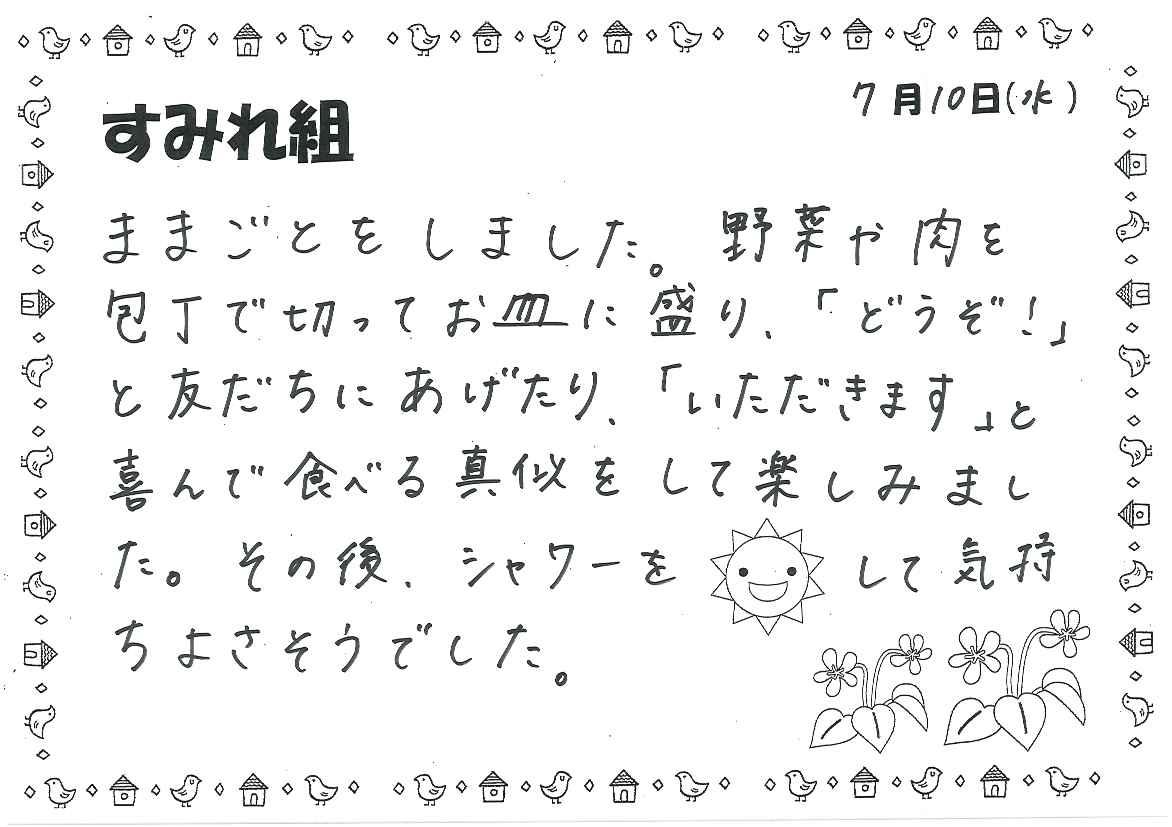 7月10日(水)
すみれ組
ままごとをしました。野菜や肉を
包丁で切ってお皿に盛り、「どうぞ!」
と友だちにあげたり、「いただきます」と
喜んで食べる真似をして楽しみまし
た。その後、シャワーを して気持
ちよさそうでした。